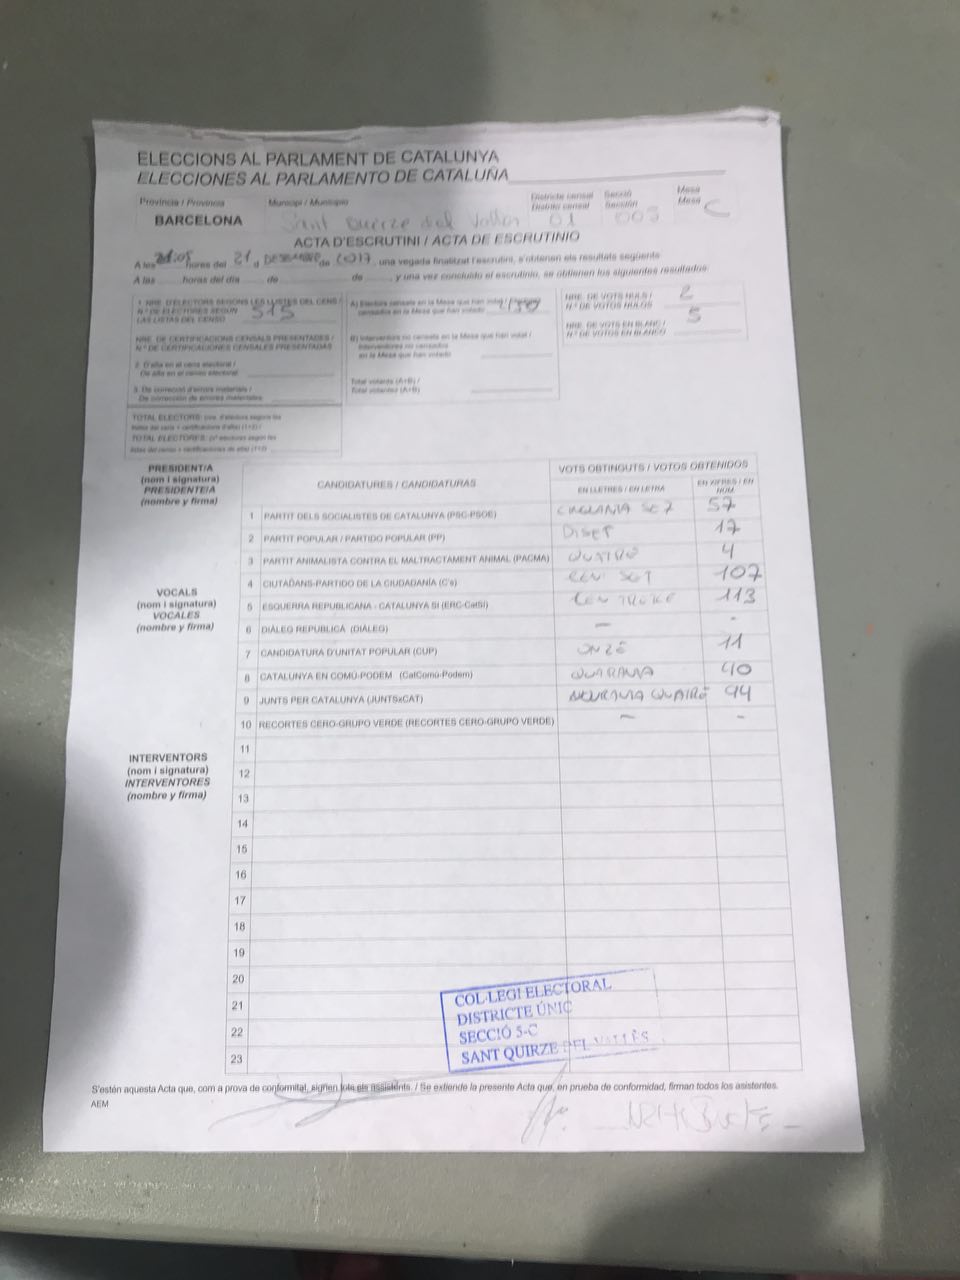 ELECCIONS AL PARLAMENT DE CATALUNYA
ELECCIONES AL PARLAMENTO DE CATALUÑA
Província / Provincia Municipi / Municipio Districte censal Secció Mesa
Distrito censal Sección Mesa
BARCELONA Sant Quirze del Vallès 01 005 C
ACTA D'ESCRUTINI / ACTA DE ESCRUTINIO
A les 21:05 hores del 21 d DESEMBRE de 2017, una vegada finalitzat l'escrutini, s'obtenen els resultats següents
A las horas del día de de y una vez concluido el escrutinio, se obtienen los siguientes resultados:
1. NRE. D'ELECTORS SEGONS LES LLISTES DEL CENS /
Nº DE ELECTORES SEGÚN
LAS LISTAS DEL CENSO 515
NRE. DE CERTIFICACIONS CENSALS PRESENTADES /
Nº DE CERTIFICACIONES CENSALES PRESENTADAS
2. D'alta en el cens electoral /
De alta en el censo electoral
3. De correcció d'errors materials /
De corrección de errores materiales
TOTAL ELECTORS: (nre. d'electors segons les
llistes del cens + certificacions d'alta) (1+2) /
TOTAL ELECTORES: (nº electores según las
listas del censo + certificaciones de alta) (1+2)
A) Electors censats en la Mesa que han votat / Electores
censados en la Mesa que han votado 450
B) Interventors no censats en la Mesa que han votat /
Interventores no censados
en la Mesa que han votado
Total votants (A+B) /
Total votantes (A+B)
NRE. DE VOTS NULS /
Nº DE VOTOS NULOS 2
NRE. DE VOTS EN BLANC /
Nº DE VOTOS EN BLANCO 5
PRESIDENT/A
(nom i signatura)
PRESIDENTE/A
(nombre y firma)
CANDIDATURES / CANDIDATURAS
VOTS OBTINGUTS / VOTOS OBTENIDOS
EN LLETRES / EN LETRA EN XIFRES / EN NÚM.
1 PARTIT DELS SOCIALISTES DE CATALUNYA (PSC-PSOE) CINQUANTA SET 57
2 PARTIT POPULAR / PARTIDO POPULAR (PP) DISET 17
3 PARTIT ANIMALISTA CONTRA EL MALTRACTAMENT ANIMAL (PACMA) QUATRE 4
4 CIUTADANS-PARTIDO DE LA CIUDADANÍA (C's) CEN SET 107
5 ESQUERRA REPUBLICANA - CATALUNYA SÍ (ERC-CatSí) CEN TRETZE 113
6 DIÀLEG REPUBLICÀ (DIÀLEG) - -
7 CANDIDATURA D'UNITAT POPULAR (CUP) ONZE 11
8 CATALUNYA EN COMÚ-PODEM (CatComú-Podem) QUARANTA 40
9 JUNTS PER CATALUNYA (JUNTSxCAT) NOURANTA QUATRE 94
10 RECORTES CERO-GRUPO VERDE (RECORTES CERO-GRUPO VERDE) - -
VOCALS
(nom i signatura)
VOCALES
(nombre y firma)
INTERVENTORS
(nom i signatura)
INTERVENTORES
(nombre y firma)
11
12
13
14
15
16
17
18
19
20
21
22
23
COL·LEGI ELECTORAL
DISTRICTE ÚNIC
SECCIÓ 5-C
SANT QUIRZE DEL VALLÈS
S'estén aquesta Acta que, com a prova de conformitat, signen tots els assistents. / Se extiende la presente Acta que, en prueba de conformidad, firman todos los asistentes.
AEM